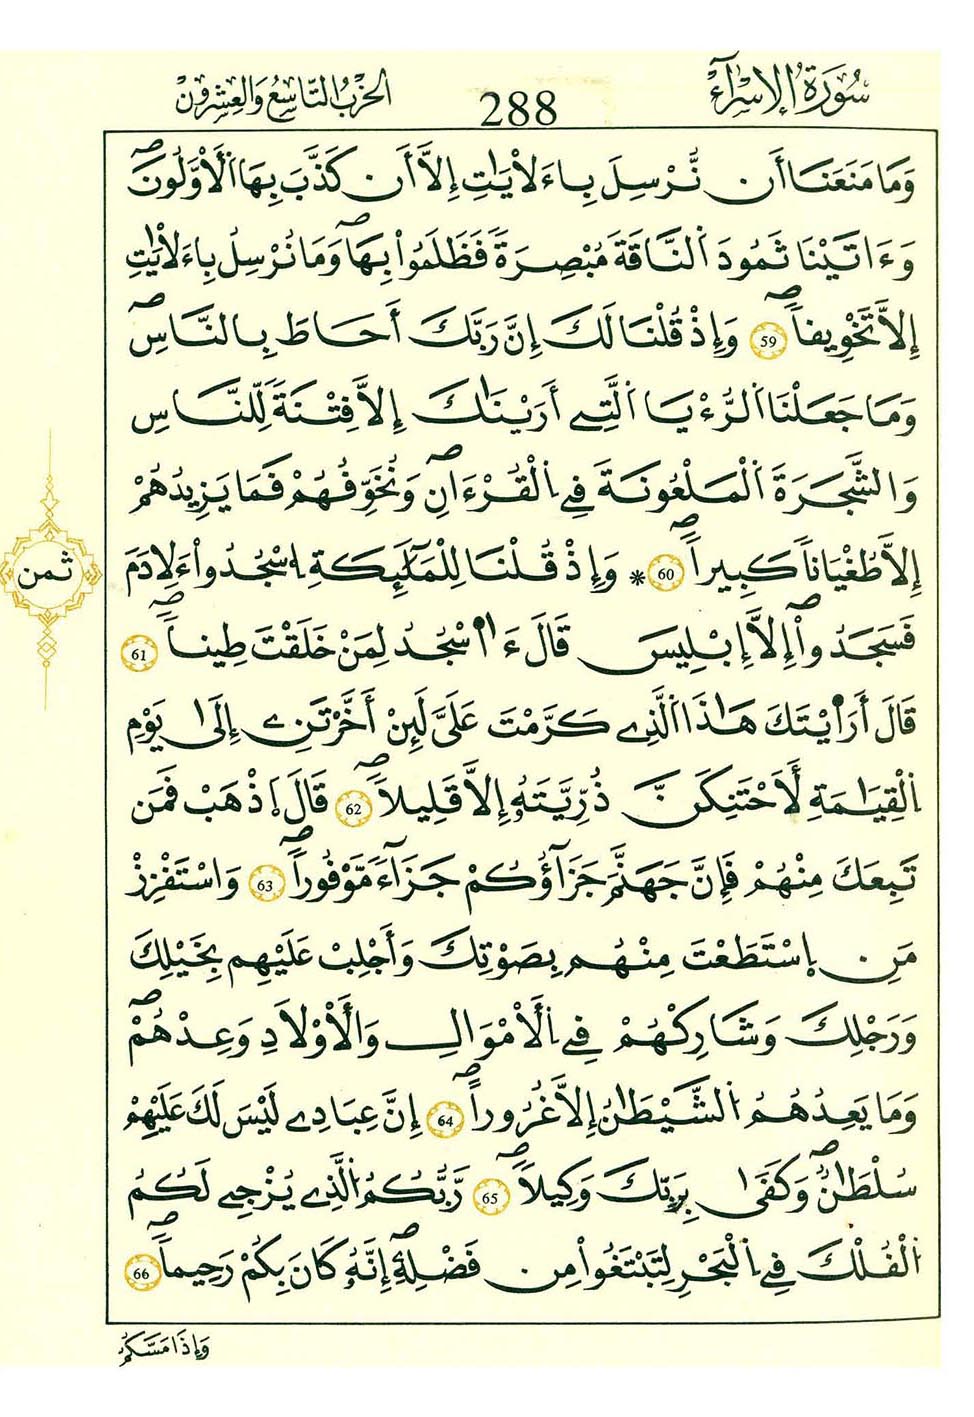 سُورَةُ الإِسْرَآءِ
288
الحِزْبُ التَّاسِعُ وَالعِشْرُونَ
وَمَا مَنَعَنَا أَن نُّرْسِلَ بِاءَلَايَٰتِ إِلَّا أَن كَذَّبَ بِهَا اَلَاوَّلُونَۖ
وَءَاتَيْنَا ثَمُودَ اَلنَّاقَةَ مُبْصِرَةٗ فَظَلَمُواْ بِهَاۖ وَمَا نُرْسِلُ بِاءَلَايَٰتِ
إِلَّا تَخْوِيفاٗۖ 59 وَإِذْ قُلْنَا لَكَ إِنَّ رَبَّكَ أَحَاطَ بِالنَّاسِۖ
وَمَا جَعَلْنَا اَلرُّءْيَا اَلتِے أَرَيْنَٰكَ إِلَّا فِتْنَةٗ لِّلنَّاسِ
وَالشَّجَرَةَ اَلْمَلْعُونَةَ فِے اِلْقُرْءَانِۖ وَنُخَوِّفُهُمْ فَمَا يَزِيدُهُمْ
إِلَّا طُغْيَاناٗ كَبِيراٗۖ 60 * وَإِذْ قُلْنَا لِلْمَلَٰٓئِكَةِ اِسْجُدُواْ ءَلِادَمَ
فَسَجَدُواْ إِلَّا إِبْلِيسَۖ قَالَ ءَا۬سْجُدُ لِمَنْ خَلَقْتَ طِيناٗۖ 61
قَالَ أَرَا۬يْتَكَ هَٰذَا اَلذِے كَرَّمْتَ عَلَيَّ لَئِنْ أَخَّرْتَنِے إِلَىٰ يَوْمِ
اِلْقِيَٰمَةِ لَأَحْتَنِكَنَّ ذُرِّيَّتَهُۥ إِلَّا قَلِيلاٗۖ 62 قَالَ اَذْهَبْ فَمَن
تَبِعَكَ مِنْهُمْ فَإِنَّ جَهَنَّمَ جَزَآؤُكُمْ جَزَآءٗ مَّوْفُوراٗۖ 63 وَاسْتَفْزِزْ
مَنِ اِسْتَطَعْتَ مِنْهُم بِصَوْتِكَ وَأَجْلِبْ عَلَيْهِم بِخَيْلِكَ
وَرَجْلِكَ وَشَارِكْهُمْ فِے اِلَامْوَالِ وَالَاوْلَادِ وَعِدْهُمْۖ
وَمَا يَعِدُهُمُ اُلشَّيْطَٰنُ إِلَّا غُرُوراٗۖ 64 إِنَّ عِبَادِے لَيْسَ لَكَ عَلَيْهِمْ
سُلْطَٰنٞۖ وَكَفَىٰ بِرَبِّكَ وَكِيلاٗۖ 65 رَّبُّكُمُ اُلذِے يُزْجِے لَكُمُ
اُلْفُلْكَ فِے اِلْبَحْرِ لِتَبْتَغُواْ مِن فَضْلِهِۦۖ إِنَّهُۥ كَانَ بِكُمْ رَحِيماٗۖ 66
ثمن
وَإِذَا مَسَّكُمُ